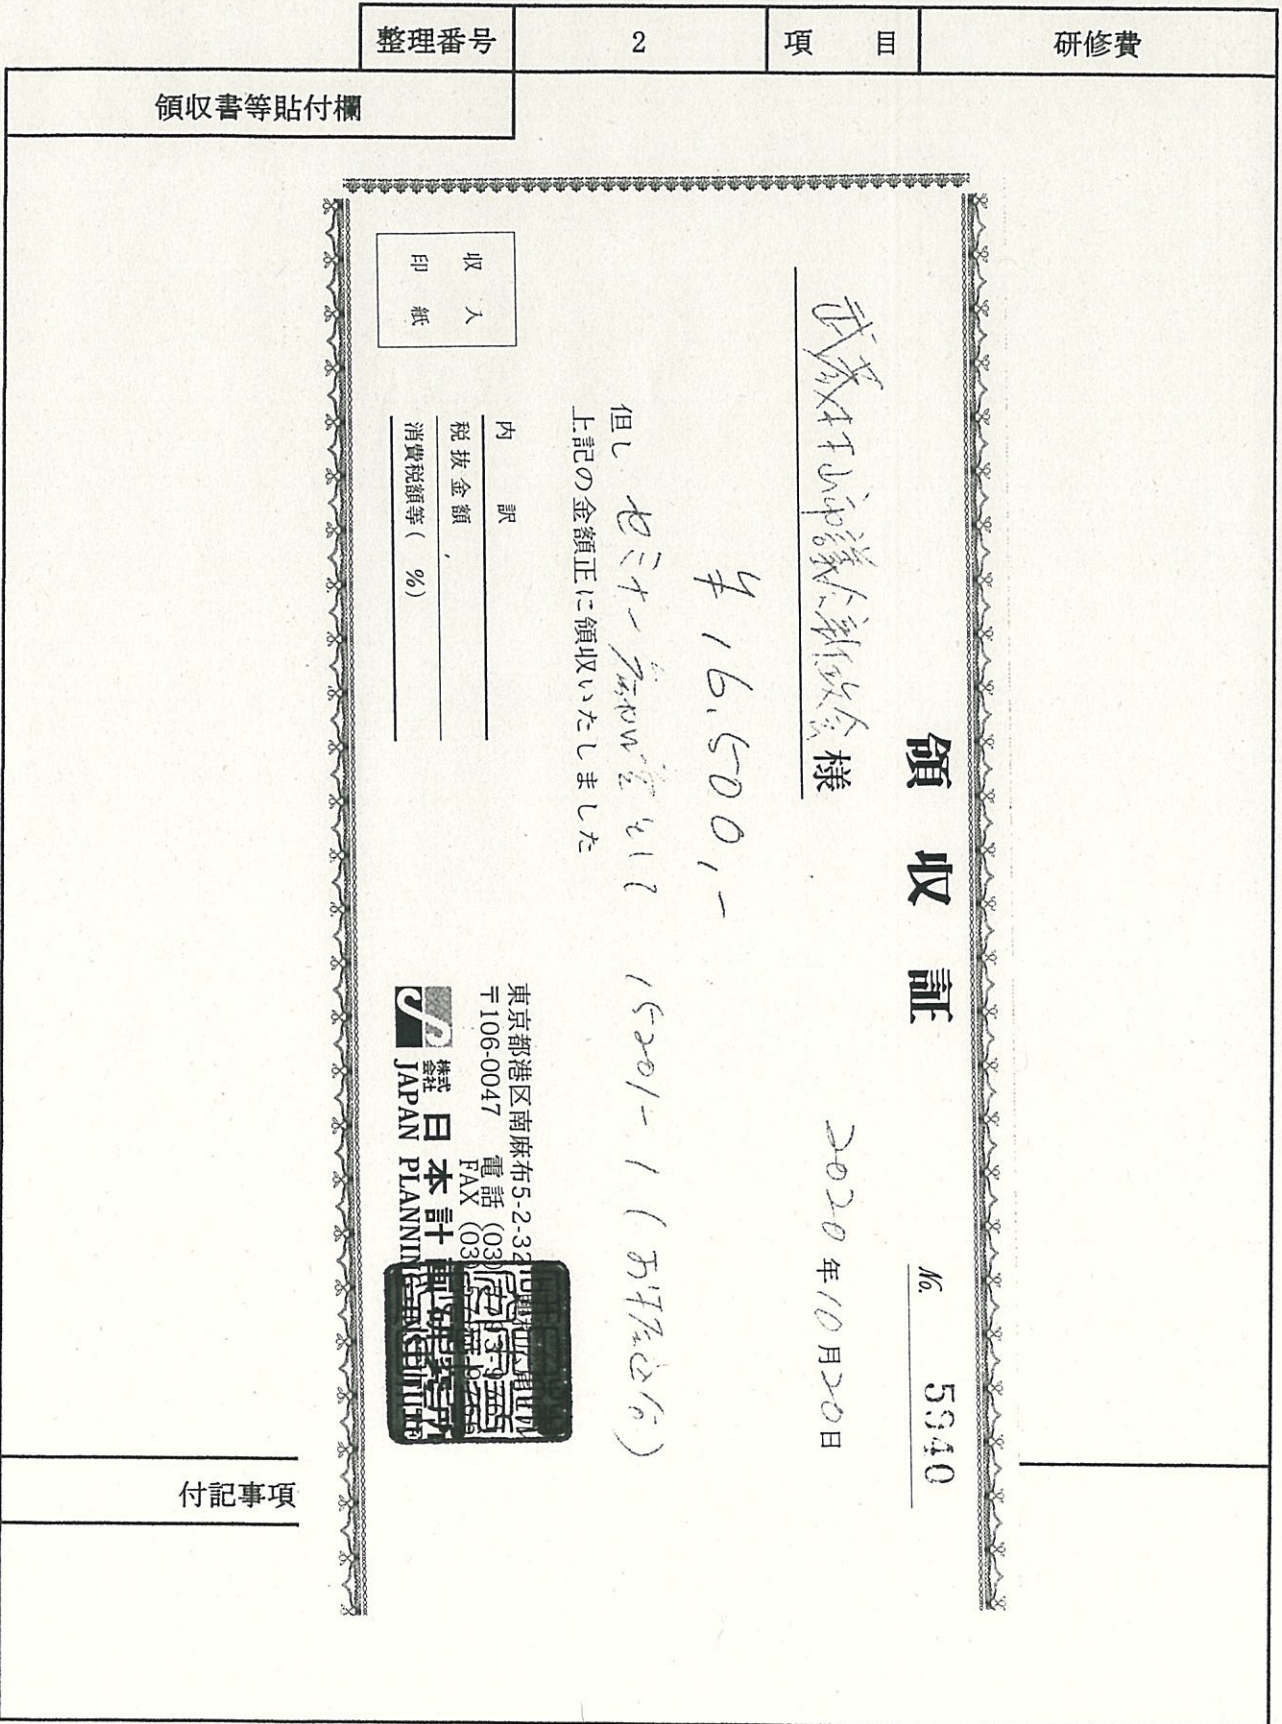 整理番号 2 項目 研修費
領収書等貼付欄
領収証
No. 5940
2020年10月20日
武蔵村山市議会新政会 様
¥16,500,-
但し セミナー参加費として 15201-1 (お振込分)
上記の金額正に領収いたしました
内訳
税抜金額
消費税額等( %)
収入
印紙
東京都港区南麻布5-2-32
〒106-0047 電話 (03)
FAX (03)
株式会社 日本計画研究所
JAPAN PLANNING INSTITUTE
付記事項